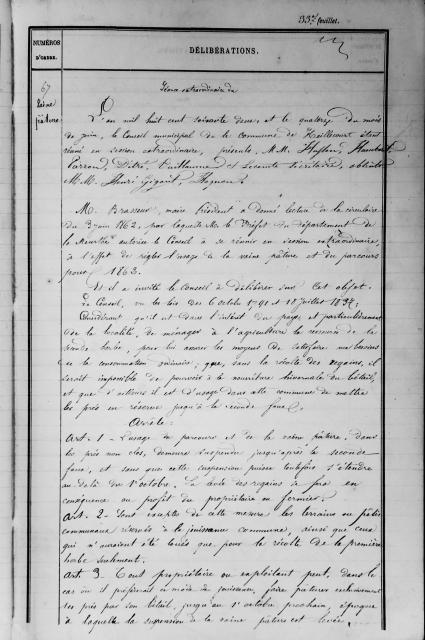 33.e feuillet.
NUMÉROS
D'ORDRE.
DÉLIBÉRATIONS.
67
Vaine
pâture
Séance extraordinaire du
L'an mil huit cent soixante deux, et le quatorze du mois
de juin, le Conseil municipal de la commune de Heillecourt étant
réuni en session extraordinaire, présents, M.M.
Perrand, Guillaume et Lecomte Secrétaire,
M.M. Henri
M. Brasseur, maire Président a donné lecture de la circulaire
du 3 juin 1862, par laquelle Mr le Préfet du département de
la Meurthe autorise le Conseil à se réunir en session extraordinaire,
à l'effet de régler l'usage de la vaine pâture et du parcours
pour 1863.
Et il a invité le Conseil à délibérer sur cet objet.
Le Conseil, vu les lois des 6 octobre 1791 et 18 juillet 1837;
Considérant qu'il est dans l'intérêt du pays, et particulièrement
de la localité, de ménager à l'agriculture la ressource de la
seconde herbe, pour lui assurer les moyens de satisfaire aux besoins
de la consommation ordinaire; que, sans la récolte des regains, il
serait impossible de pourvoir à la nourriture hivernale du bétail,
et que d'ailleurs il est d'usage dans cette commune de mettre
les prés en réserve jusqu'à la seconde faux,
Arrête:
Art. 1 - L'usage du parcours et de la vaine pâture, dans
les prés non clos, demeure suspendu jusqu'après la seconde
faux, et sans que cette suspension puisse toutefois s'étendre
au delà du 1er octobre. La récolte des regains se fera en
conséquence au profit du propriétaire ou fermier.
Art. 2 - Sont exceptés de cette mesure les terrains ou pâtis
communaux réservés à la jouissance commune, ainsi que ceux
qui n'auraient été loués que pour la récolte de la première
herbe seulement.
Art. 3 - Tout propriétaire ou exploitant peut, dans le
cas où il préférerait ce mode de jouissance, faire pâturer exclusivement
ses prés par son bétail, jusqu'au 1er octobre prochain, époque
à laquelle la suspension de la vaine pâture est levée.